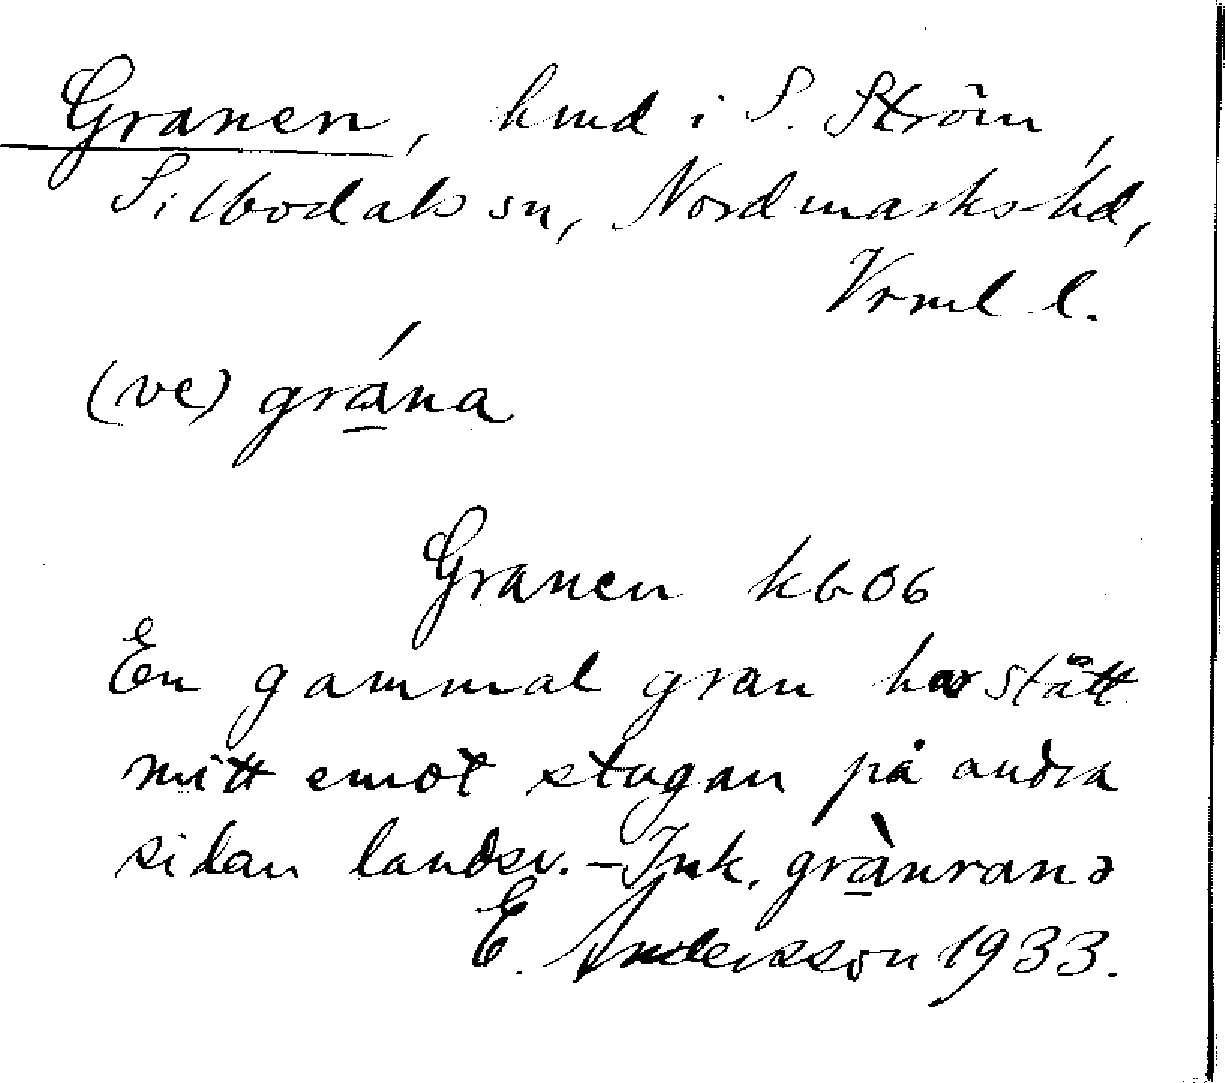 Granen, hmd i S. Ström,
Silbodals sn, Nordmarks hd,
Vrml l.
(ve) grána
Granen kb 06
En gammal gran har stått
mitt emot stugan på andra
sidan landsv. – Ink. grànranə
E. Andersson 1933.